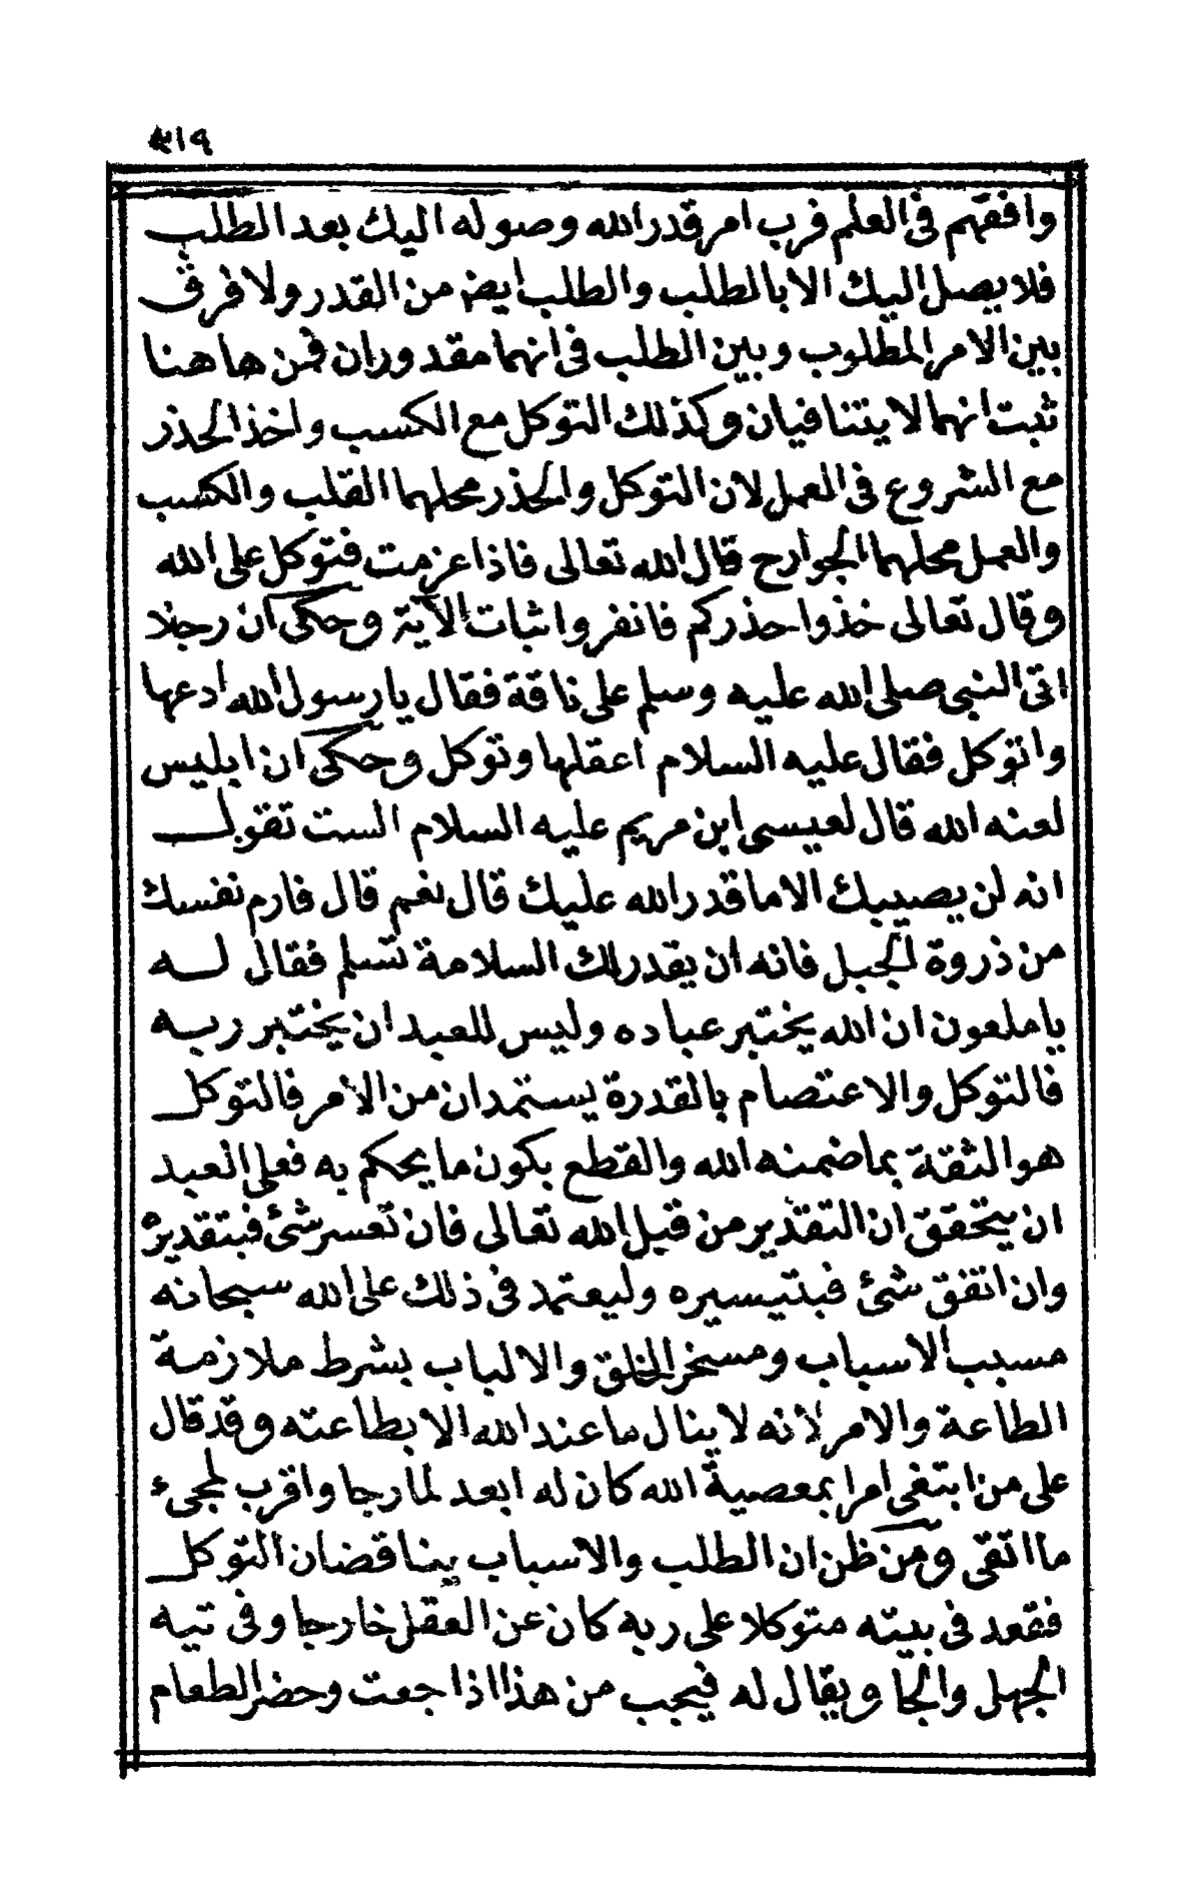 ٣١٩
وافقهم فى العلم فرب امر قدر الله وصوله اليك بعد الطلب
فلا يصل اليك الا بالطلب والطلب ايض من القدر ولا فرق
بين الامر المطلوب وبين الطلب فى انهما مقدوران فمن هاهنا
ثبت انهما لا يتنافيان وكذلك التوكل مع الكسب واخذ الحذر
مع الشروع فى العمل لان التوكل والحذر محلهما القلب والكسب
والعمل محلهما الجوارح قال الله تعالى فاذا عزمت فتوكل على الله
وقال تعالى خذوا حذركم فانفروا ثبات الآية وحكى ان رجلا
اتى النبى صلى الله عليه وسلم على ناقة فقال يا رسول الله ادعها
واتوكل فقال عليه السلام اعقلها وتوكل وحكى ان ابليس
لعنه الله قال لعيسى ابن مريم عليه السلام الست تقول
انه لن يصيبك الا ما قدر الله عليك قال نعم قال فارم نفسك
من ذروة الجبل فانه ان يقدر لك السلامة تسلم فقال له
يا ملعون ان الله يختبر عباده وليس للعبد ان يختبر ربه
فالتوكل والاعتصام بالقدرة يستمدان من الامر فالتوكل
هو الثقة بما ضمنه الله والقطع بكون ما يحكم به فعلى العبد
ان يتحقق ان التقدير من قبل الله تعالى فان تعسر شئ فبتقديره
وان اتفق شئ فبتيسيره وليعتمد فى ذلك على الله سبحانه
مسبب الاسباب ومسخر الخلق والالباب بشرط ملازمة
الطاعة والامر لانه لا ينال ما عند الله الا بطاعته وقد قال
على من ابتغى امرا بمعصية الله كان له ابعد لما رجا واقرب لمجىء
ما اتقى ومن ظن ان الطلب والاسباب يناقضان التوكل
فقعد فى بيته متوكلا على ربه كان عن العقل خارجا وفى تيه
الجهل والجا ويقال له فيجب من هذا اذا جعت وحضر الطعام